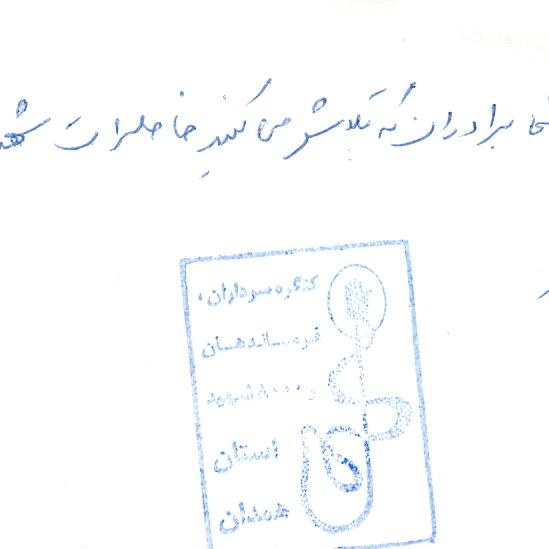 برادران که تلاش می کنید خاطرات
کنگره سرداران،
فرماندهان
و ۸۰۰۰ شهید
استان
همدان